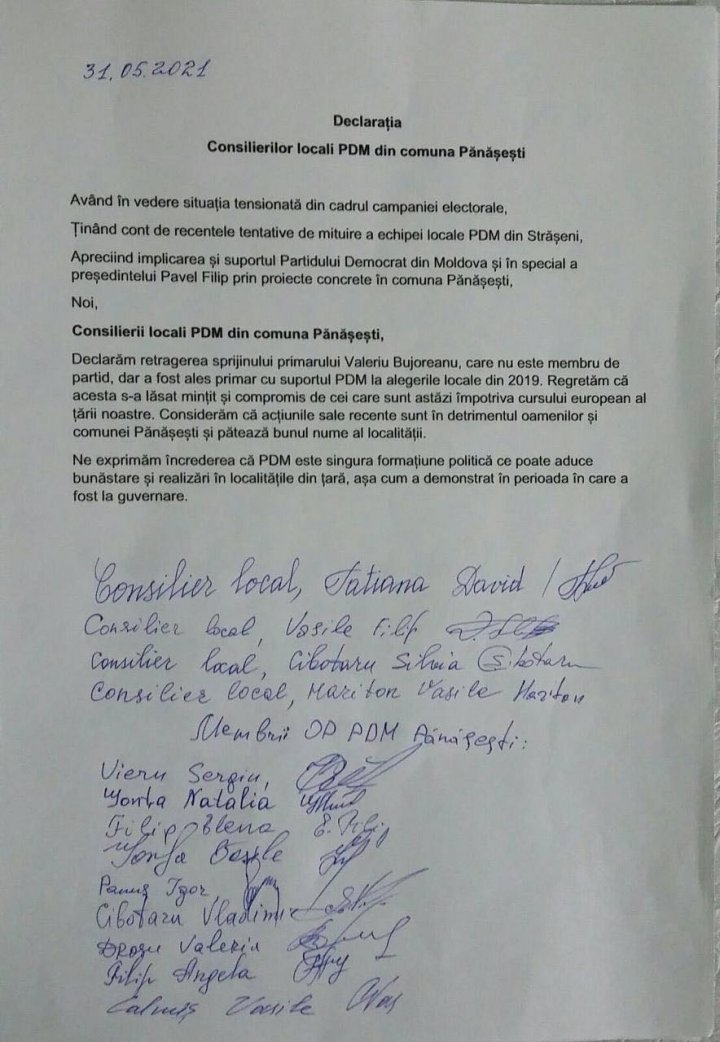 31.05.2021
Declarația
Consilierilor locali PDM din comuna Pănășești
Având în vedere situația tensionată din cadrul campaniei electorale,
Ținând cont de recentele tentative de mituire a echipei locale PDM din Strășeni,
Apreciind implicarea și suportul Partidului Democrat din Moldova și în special a
președintelui Pavel Filip prin proiecte concrete în comuna Pănășești,
Noi,
Consilierii locali PDM din comuna Pănășești,
Declarăm retragerea sprijinului primarului Valeriu Bujoreanu, care nu este membru de
partid, dar a fost ales primar cu suportul PDM la alegerile locale din 2019. Regretăm că
acesta s-a lăsat mințit și compromis de cei care sunt astăzi împotriva cursului european al
țării noastre. Considerăm că acțiunile sale recente sunt în detrimentul oamenilor și
comunei Pănășești și pătează bunul nume al localității.
Ne exprimăm încrederea că PDM este singura formațiune politică ce poate aduce
bunăstare și realizări în localitățile din țară, așa cum a demonstrat în perioada în care a
fost la guvernare.
Consilier local, Tatiana David /
Consilier local, Vasile Filip
Consilier local, Cibotaru Silvia Cibotaru
Consilier local, Hariton Vasile Hariton
Membrii OP PDM Pănășești:
Vieru Sergiu,
Natalia
Filip Elena E. Filip
Vasile
Panuș Igor
Cibotaru Vladimir
Droșu Valeriu
Filip Angela
Calmîș Vasile